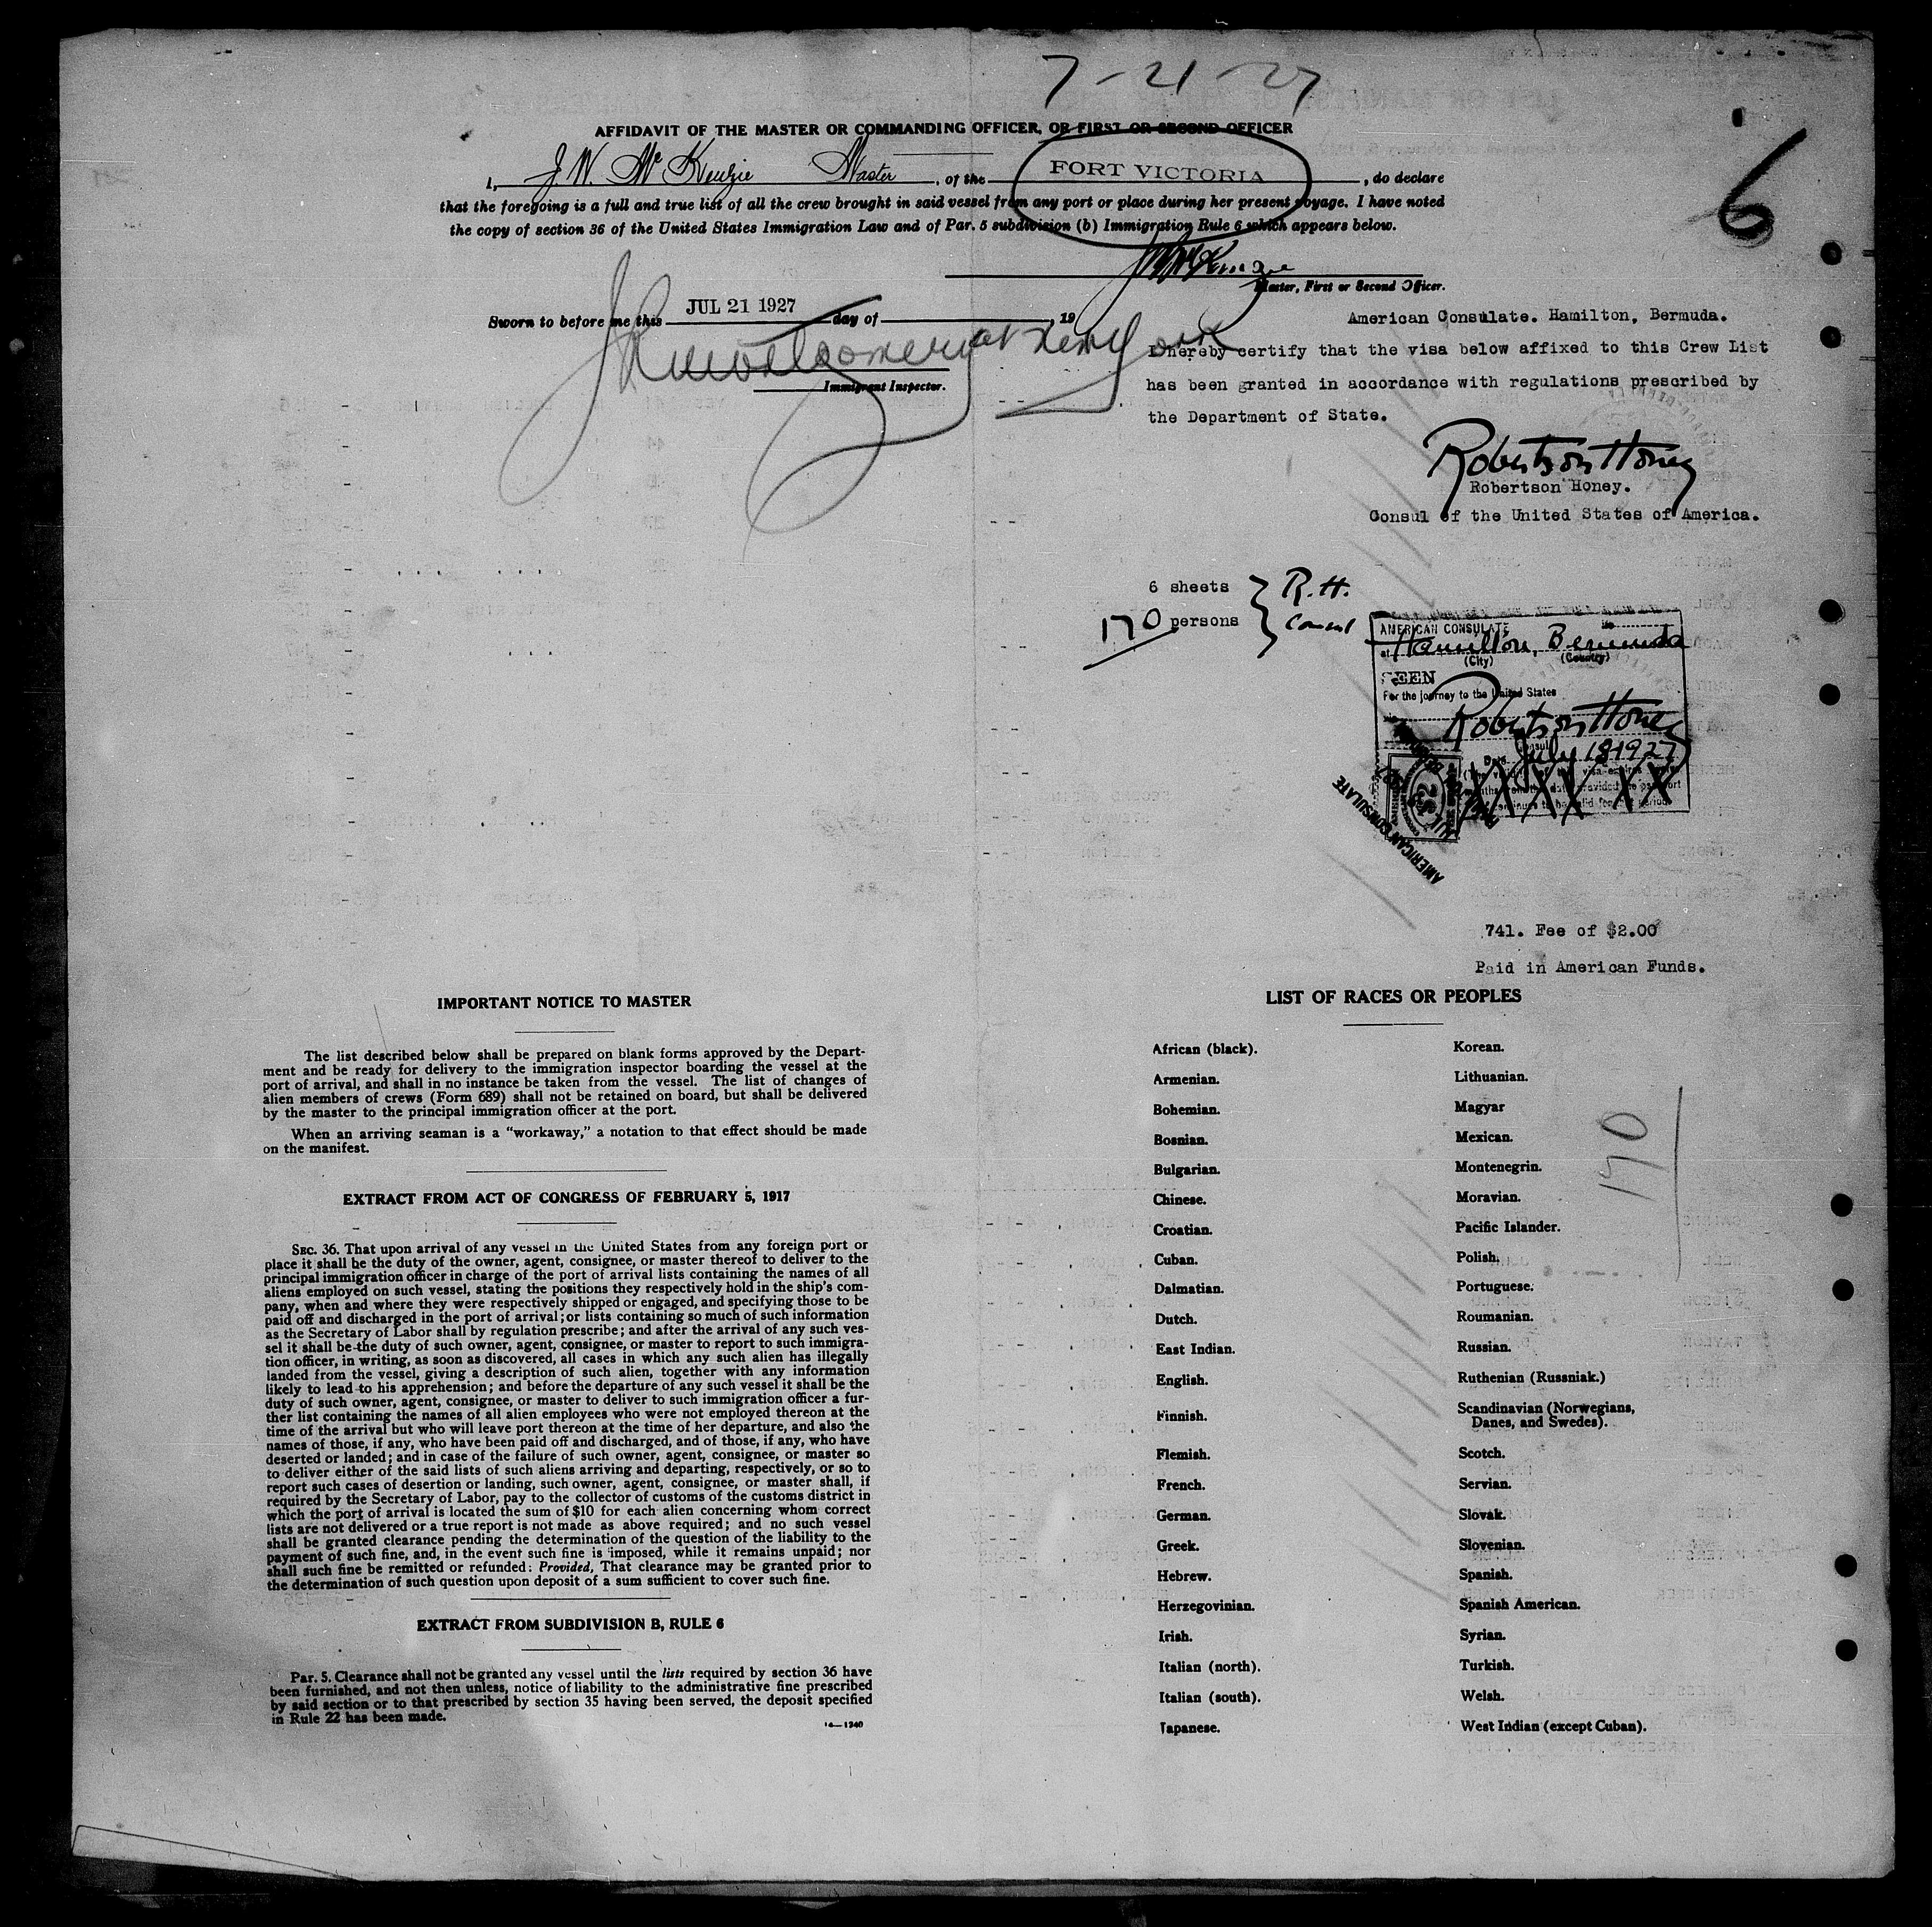 7-21-27
6
AFFIDAVIT OF THE MASTER OR COMMANDING OFFICER, OR FIRST OR SECOND OFFICER
I, J. W. McKenzie Master, of the FORT VICTORIA, do declare
that the foregoing is a full and true list of all the crew brought in said vessel from any port or place during her present voyage. I have noted
the copy of section 36 of the United States Immigration Law and of Par. 5 subdivision (b) Immigration Rule 6 which appears below.
J W McKenzie
Master, First or Second Officer.
Sworn to before me this JUL 21 1927 day of , 19
at New York
Immigrant Inspector.
American Consulate. Hamilton, Bermuda.
I hereby certify that the visa below affixed to this Crew List
has been granted in accordance with regulations prescribed by
the Department of State.
Robertson Honey
Robertson Honey.
Consul of the United States of America.
6 sheets
170 persons
R. H.
Consul
AMERICAN CONSULATE
at Hamilton, Bermuda
(City) (Country)
SEEN
For the journey to the United States
Robertson Honey
Consul
Date July 18 1927
XXXX XX
$2
AMERICAN CONSULATE
741. Fee of $2.00
Paid in American Funds.
IMPORTANT NOTICE TO MASTER
The list described below shall be prepared on blank forms approved by the Depart-
ment and be ready for delivery to the immigration inspector boarding the vessel at the
port of arrival, and shall in no instance be taken from the vessel. The list of changes of
alien members of crews (Form 689) shall not be retained on board, but shall be delivered
by the master to the principal immigration officer at the port.
When an arriving seaman is a "workaway," a notation to that effect should be made
on the manifest.
EXTRACT FROM ACT OF CONGRESS OF FEBRUARY 5, 1917
SEC. 36. That upon arrival of any vessel in the United States from any foreign port or
place it shall be the duty of the owner, agent, consignee, or master thereof to deliver to the
principal immigration officer in charge of the port of arrival lists containing the names of all
aliens employed on such vessel, stating the positions they respectively hold in the ship's com-
pany, when and where they were respectively shipped or engaged, and specifying those to be
paid off and discharged in the port of arrival; or lists containing so much of such information
as the Secretary of Labor shall by regulation prescribe; and after the arrival of any such ves-
sel it shall be the duty of such owner, agent, consignee, or master to report to such immigra-
tion officer, in writing, as soon as discovered, all cases in which any such alien has illegally
landed from the vessel, giving a description of such alien, together with any information
likely to lead to his apprehension; and before the departure of any such vessel it shall be the
duty of such owner, agent, consignee, or master to deliver to such immigration officer a fur-
ther list containing the names of all alien employees who were not employed thereon at the
time of the arrival but who will leave port thereon at the time of her departure, and also the
names of those, if any, who have been paid off and discharged, and of those, if any, who have
deserted or landed; and in case of the failure of such owner, agent, consignee, or master so
to deliver either of the said lists of such aliens arriving and departing, respectively, or so to
report such cases of desertion or landing, such owner, agent, consignee, or master shall, if
required by the Secretary of Labor, pay to the collector of customs of the customs district in
which the port of arrival is located the sum of $10 for each alien concerning whom correct
lists are not delivered or a true report is not made as above required; and no such vessel
shall be granted clearance pending the determination of the question of the liability to the
payment of such fine, and, in the event such fine is imposed, while it remains unpaid; nor
shall such fine be remitted or refunded: Provided, That clearance may be granted prior to
the determination of such question upon deposit of a sum sufficient to cover such fine.
EXTRACT FROM SUBDIVISION B, RULE 6
Par. 5. Clearance shall not be granted any vessel until the lists required by section 36 have
been furnished, and not then unless, notice of liability to the administrative fine prescribed
by said section or to that prescribed by section 35 having been served, the deposit specified
in Rule 22 has been made.
14—1240
LIST OF RACES OR PEOPLES
African (black).
Armenian.
Bohemian.
Bosnian.
Bulgarian.
Chinese.
Croatian.
Cuban.
Dalmatian.
Dutch.
East Indian.
English.
Finnish.
Flemish.
French.
German.
Greek.
Hebrew.
Herzegovinian.
Irish.
Italian (north).
Italian (south).
Japanese.
Korean.
Lithuanian.
Magyar
Mexican.
Montenegrin.
Moravian.
Pacific Islander.
Polish.
Portuguese.
Roumanian.
Russian.
Ruthenian (Russniak.)
Scandinavian (Norwegians,
Danes, and Swedes).
Scotch.
Servian.
Slovak.
Slovenian.
Spanish.
Spanish American.
Syrian.
Turkish.
Welsh.
West Indian (except Cuban).
170